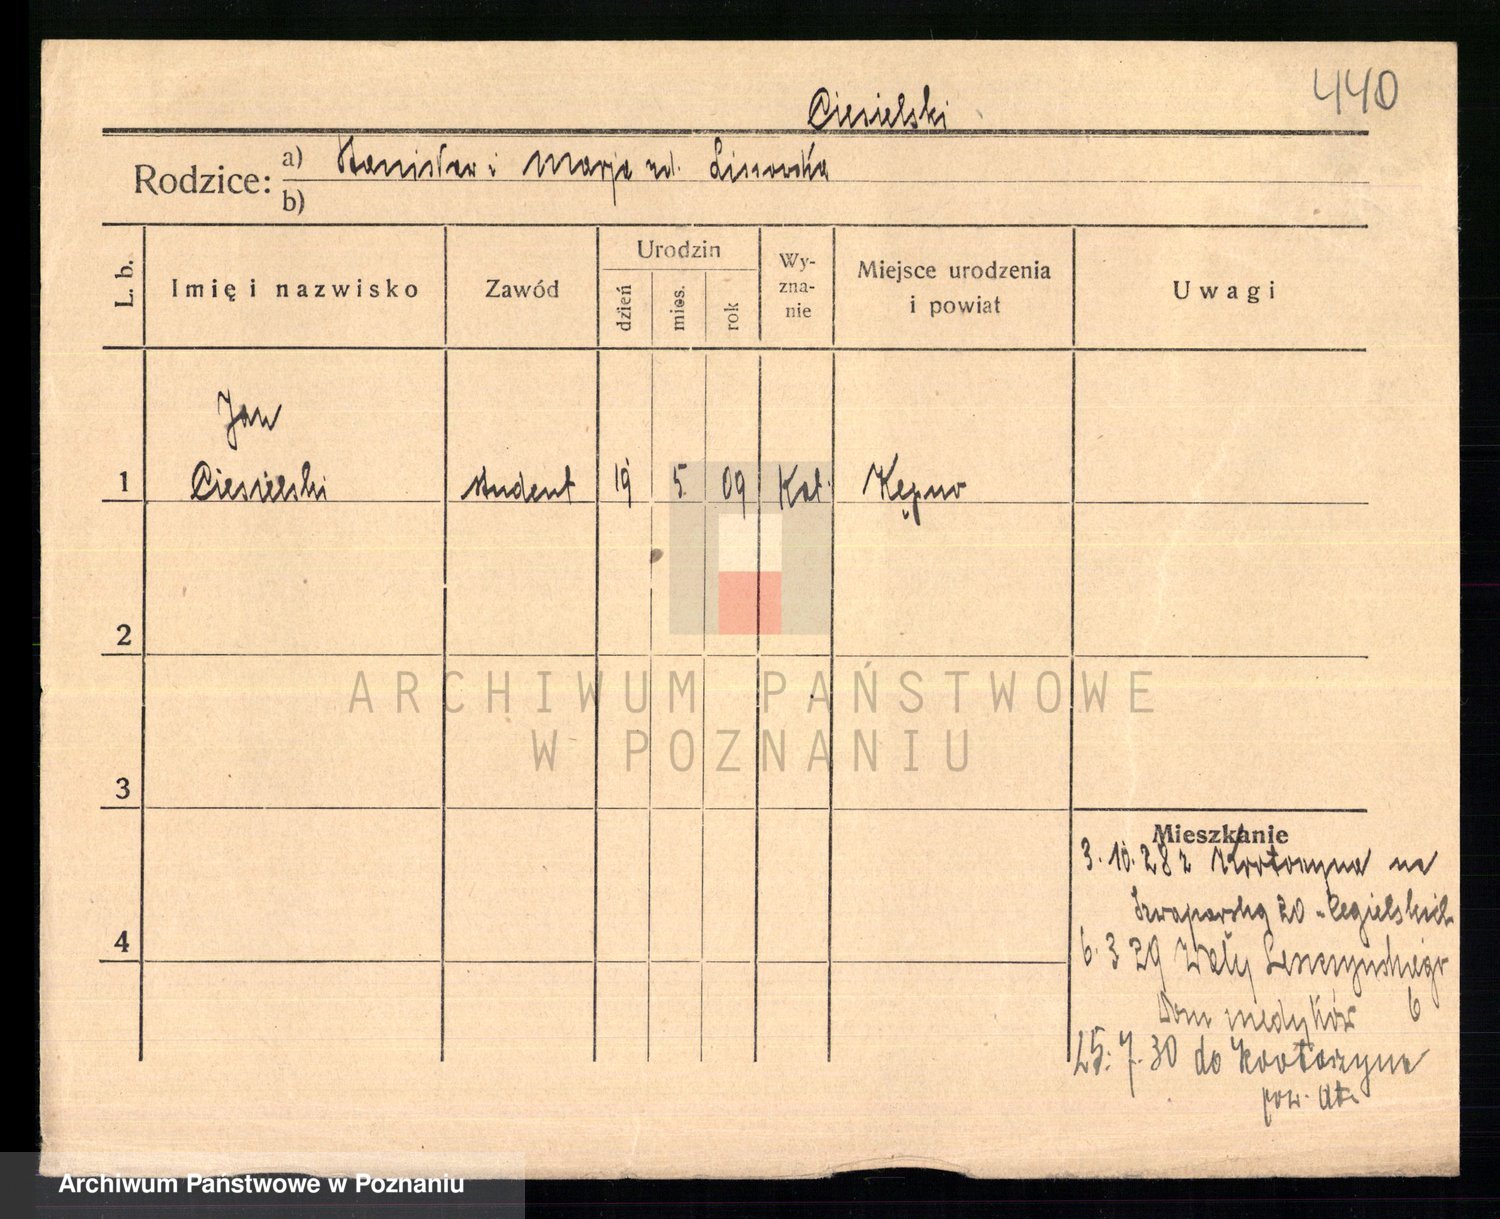 440
Ciesielski
Rodzice: a) Stanisław i Marja ur. Lisowska
b)
L. b. Imię i nazwisko Zawód Urodzin dzień mies. rok Wy-zna-nie Miejsce urodzenia i powiat Uwagi
Jan
1 Ciesielski student 19 5. 09 Kat. Kępno
2
ARCHIWUM PAŃSTWOWE
W POZNANIU
3
Mieszkanie
3. 10. 28 z Krotoszyna na
20 Cegielski
4
6. 3 29 Wały Leszczyńskiego
Dom medyków 6
25. 7. 30 do Krotoszyna
pow.
Archiwum Państwowe w Poznaniu